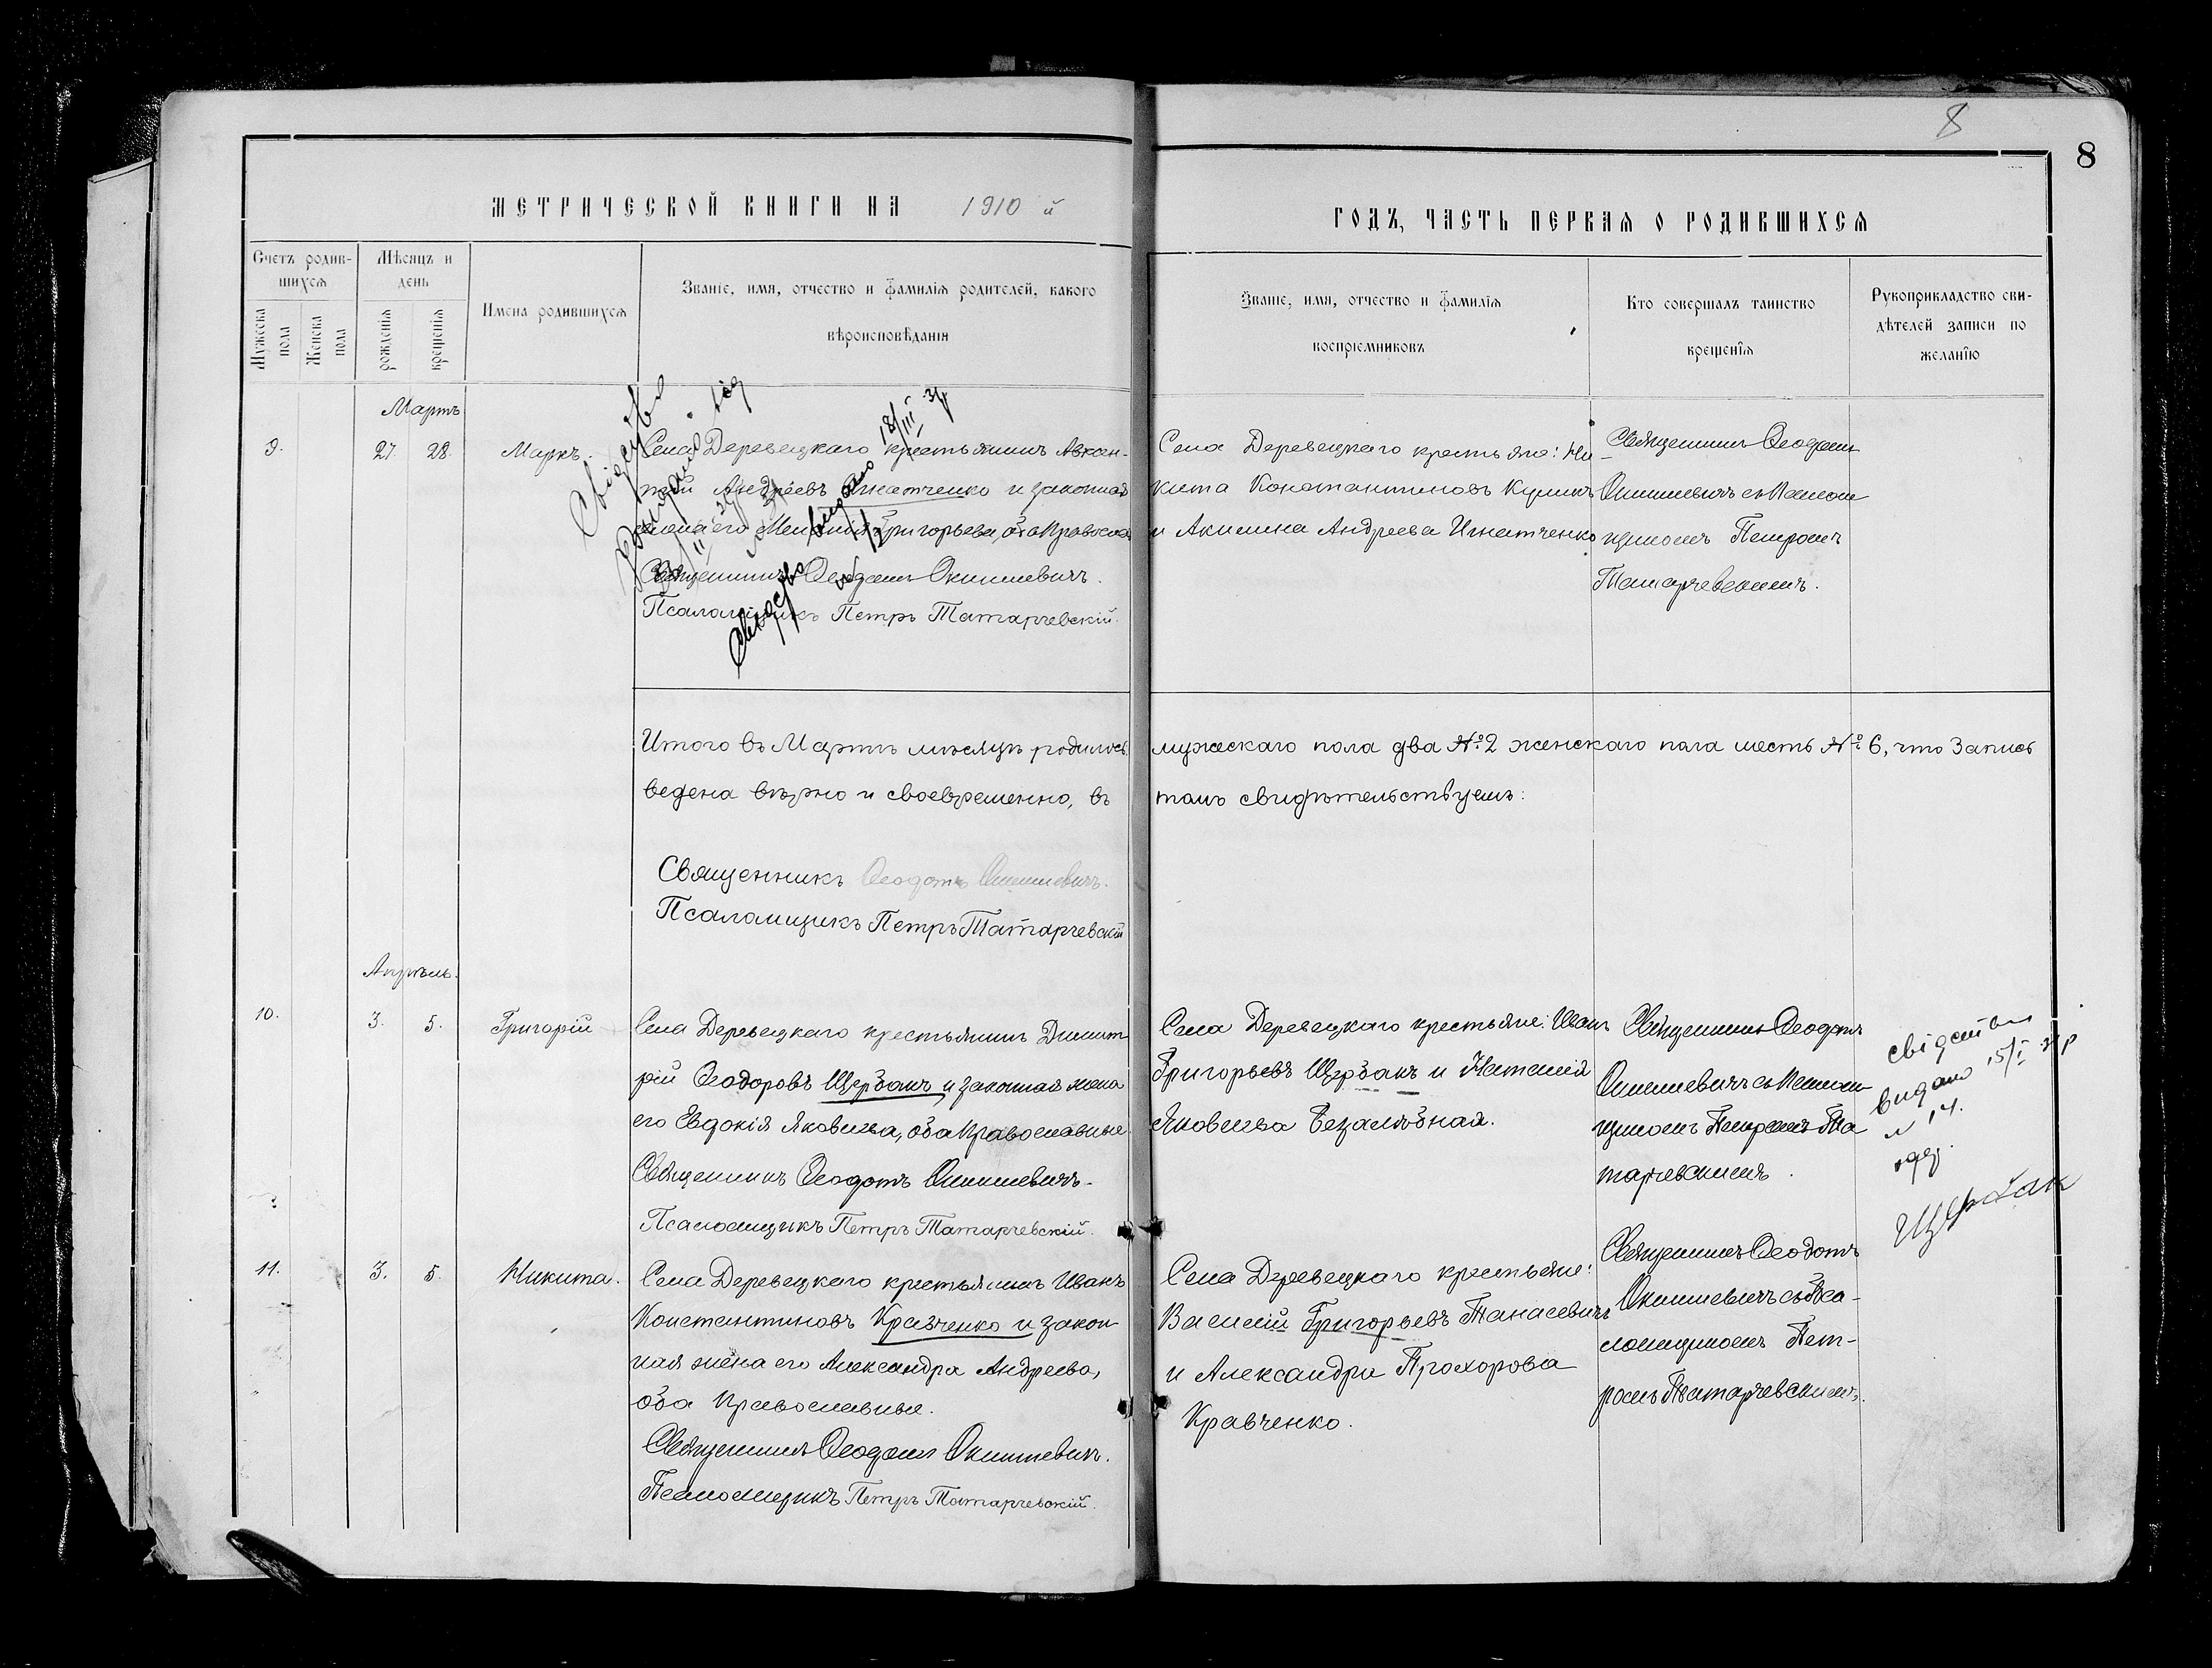 8
8
МЕТРИЧЕСКОЙ КНИГИ НА 1910 й
ГОДЪ, ЧАСТЬ ПЕРВАЯ О РОДИВШИХСЯ
Счетъ родив-
шихся
Мужеска пола
Женска пола
Мѣсяцъ и
день
рожденія
крещенія
Имена родившихся
Званіе, имя, отчество и фамилія родителей, какого
вѣроисповѣданія
Званіе, имя, отчество и фамилія
воспріемниковъ
Кто совершалъ таинство
крещенія
Рукоприкладство сви-
дѣтелей записи по
желанію
Мартъ
9. 27. 28. Маркъ.
Села Деревецкаго крестьянинъ Авксен-
тій Андреевъ Игнатченко и законная
жена его Григорьева, оба Православ
Священникъ Ѳеодотъ Окиншевичъ.
Псаломщикъ Петръ Татарчевскій.
свидоцтво видано 18/III 31р
Села Деревецкаго крестьяне: Ни-
кита Константиновъ Куликъ
и Акилина Андреева Игнатченко
Священникъ Ѳеодотъ
Окиншевичъ съ Псалом
щикомъ Петромъ
Татарчевскимъ.
Итого въ Мартѣ мѣсяцѣ родилось
мужескаго пола два № 2 женскаго пола шесть № 6, что Запись
ведена вѣрно и своевременно, въ
томъ свидѣтельствуемъ:
Священникъ Ѳеодотъ Окиншевичъ.
Псаломщикъ Петръ Татарчевскій
Апрѣль.
10. 3. 5. Григорій
Села Деревецкаго крестьянинъ Димит
рій Ѳеодоровъ Щербакъ и законная жена
его Евдокія Яковлева, оба Православные
Священникъ Ѳеодотъ Окиншевичъ.
Псаломщикъ Петръ Татарчевскій.
Села Деревецкаго крестьяне: Иванъ
Григорьевъ Щербакъ и Наталія
Яковлева Безалтобная.
Священникъ Ѳеодотъ
Окиншевичъ съ Псалом
щикомъ Петромъ Та
тарчевскимъ.
видано 15/I 31р
№ 14.
Щербак
11. 3. 5. Никита.
Села Деревецкаго крестьянинъ Иванъ
Константиновъ Кравченко и закон
ная жена его Александра Андреева,
оба Православные.
Священникъ Ѳеодотъ Окиншевичъ.
Псаломщикъ Петръ Татарчевскій.
Села Деревецкаго крестьяне:
Василій Григорьевъ Танасевичъ
и Александра Прохорова
Кравченко.
Священникъ Ѳеодотъ
Окиншевичъ съ Пса-
ломщикомъ Пет-
ромъ Татарчевскимъ.